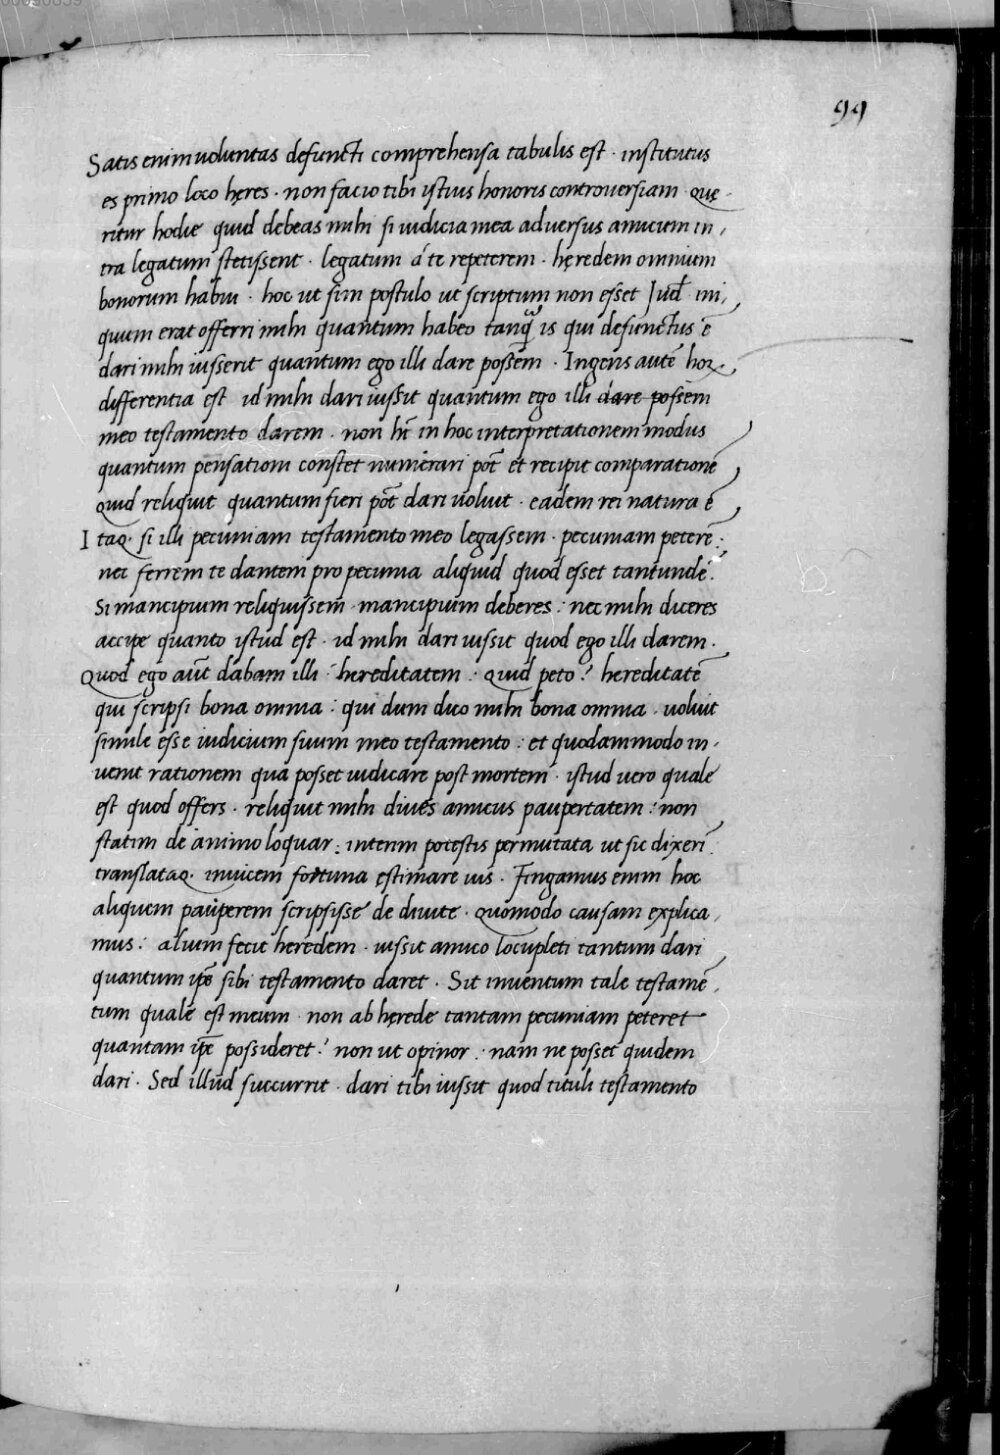 99
Satis enim uoluntas defuncti comprehensa tabulis est · institutus
es primo loco hęres · non facio tibi istius honoris controuersiam · Quę-
ritur hodie quid debeas mihi si iudicia mea aduersus amicum in,
tra legatum stetissent · legatum á te repeterem · hęredem omnium
bonorum habui · hoc ut sim postulo ut scriptum non esset Iud̄ · ini,
quum erat offerri mihi quantum habeo tanq̃ is qui defunctus ē
dari mihi iusserit quantum ego illi dare possem · Ingens autē hoꝝ
differentia est id mihi dari iussit quantum ego illi dare possem
meo testamento darem · non hēt in hoc interpretationem modus
quantum pensationi constet numerari pōt et recipit comparationē
Quid reliquit quantum fieri pōt dari uoluit · eadem rei natura ē
Itaq· si illi pecuniam testamento meo legassem · pecuniam peterē:
nec ferrem te dantem pro pecunia aliquid quod esset tantundē:
Si mancipium reliquissem · mancipium deberes: nec mihi diceres
accipe quanto istud est · id mihi dari iussit quod ego illi darem ·
Quod ego aūt dabam illi? hereditatem: Quid peto? hereditatē
qui scripsi bona omnia: qui dum duo mihi bona omnia · uoluit
simile esse iudicium suum meo testamento: et quodammodo in-
uenit rationem qua posset iudicare post mortem · istud uero quale
est quod offers · reliquit mihi diues amicus paupertatem: non
statim de animo loquar: interim potestis permutata ut sic dixerī
translataq· inuicem fortuna ęstimare uis · Fingamus enim hoc
aliquem pauperem scripsisse de diuite · Quomodo causam explica,
mus: alium fecit heredem · iussit amico locupleti tantum dari
quantum ip̄e sibi testamento daret · Sit inuentum tale testamē,
tum quale est meum · non ab hęrede tantam pecuniam peteret
quantam ip̄e possideret? non ut opinor: nam ne posset quidem
dari · Sed illud succurrit · dari tibi iussit quod tituli testamento